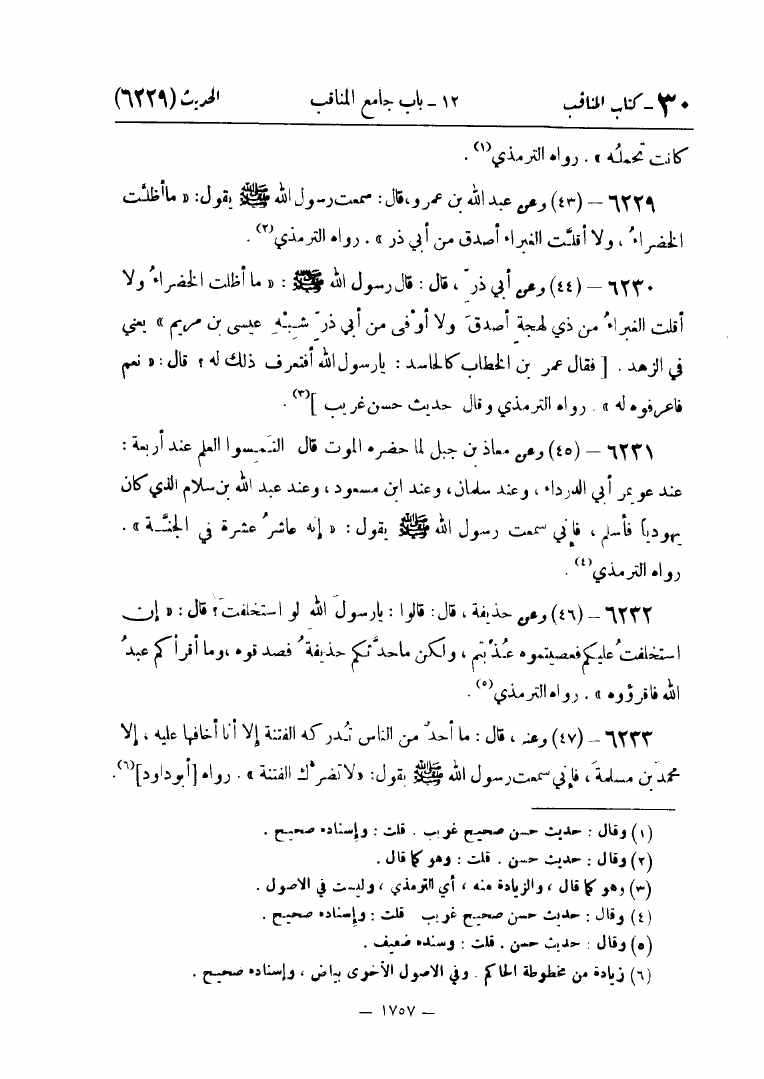 ٣٠ - كتاب المناقب ١٢ - باب جامع المناقب الحديث (٦٢٢٩)
كانت تحملُه » . رواه الترمذي(١) .
٦٢٢٩ – (٤٣) وعن عبد الله بن عمرو ، قال : سمعت رسول الله ﷺ يقول : « ما أظلَّت
الخضراءُ ، ولا أقلَّت الغبراء أصدق من أبي ذر » . رواه الترمذي(٢) .
٦٢٣٠ – (٤٤) وعن أبي ذرّ ، قال : قال رسول الله ﷺ : « ما أظلت الخضراءُ ولا
أقلت الغبراءُ من ذي لهجةٍ أصدقَ ولا أوْفى من أبي ذرّ شِبْهِ عيسى بن مريم » يعني
في الزهد . [ فقال عمر بن الخطاب كالحاسد : يا رسول الله أفتعرف ذلك له ؟ قال : « نعم
فاعرفوه له » . رواه الترمذي وقال حديث حسن غريب ](٣) .
٦٢٣١ – (٤٥) وعن معاذ بن جبل لما حضره الموت قال التَمِسوا العلم عند أربعة :
عند عويمر أبي الدرداء ، وعند سلمان ، وعند ابن مسعود ، وعند عبد الله بن سلام الذي كان
يهودياً فأسلم ، فإني سمعت رسول الله ﷺ يقول : « إنه عاشرُ عشرة في الجنَّة » .
رواه الترمذي(٤) .
٦٢٣٢ – (٤٦) وعن حذيفة ، قال : قالوا : يا رسولَ الله لو استخلفتَ ؟ قال : « إن
استخلفتُ عليكم فعصيتموه عُذِّبتم ، ولكن ما حدَّثكم حذيفةُ فصدقوه ، وما أقرأكم عبدُ
الله فاقرؤوه » . رواه الترمذي(٥) .
٦٢٣٣ – (٤٧) وعنه ، قال : ما أحدٌ من الناس تُدركه الفتنة إلا أنا أخافها عليه ، إلا
محمدَ بن مسلمةَ ، فإني سمعت رسول الله ﷺ يقول : « لا تضرُّك الفتنة » . رواه [أبو داود](٦) .
(١) وقال : حديث حسن صحيح غريب . قلت : وإسناده صحيح .
(٢) وقال : حديث حسن . قلت : وهو كما قال .
(٣) وهو كما قال ، والزيادة منه ، أي الترمذي ، وليست في الاصول .
(٤) وقال : حديث حسن صحيح غريب قلت : وإسناده صحيح .
(٥) وقال : حديث حسن . قلت : وسنده ضعيف .
(٦) زيادة من مخطوطة الحاكم . وفي الاصول الأخرى بياض ، وإسناده صحيح .
– ١٧٥٧ –